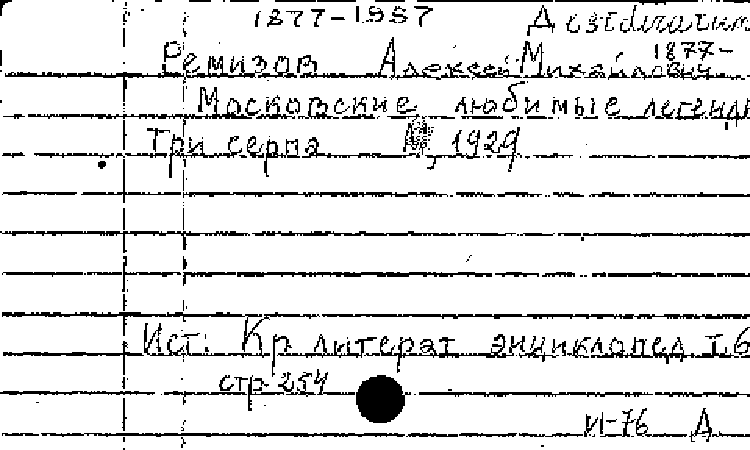 1877-1957 Дезидерат
Ремизов Алексей Михайлович 1877-
Московские любимые легенды
Три серпа М, 1929
Ист: Кр литерат энциклопед т.6
стр 254
VI-76 Д